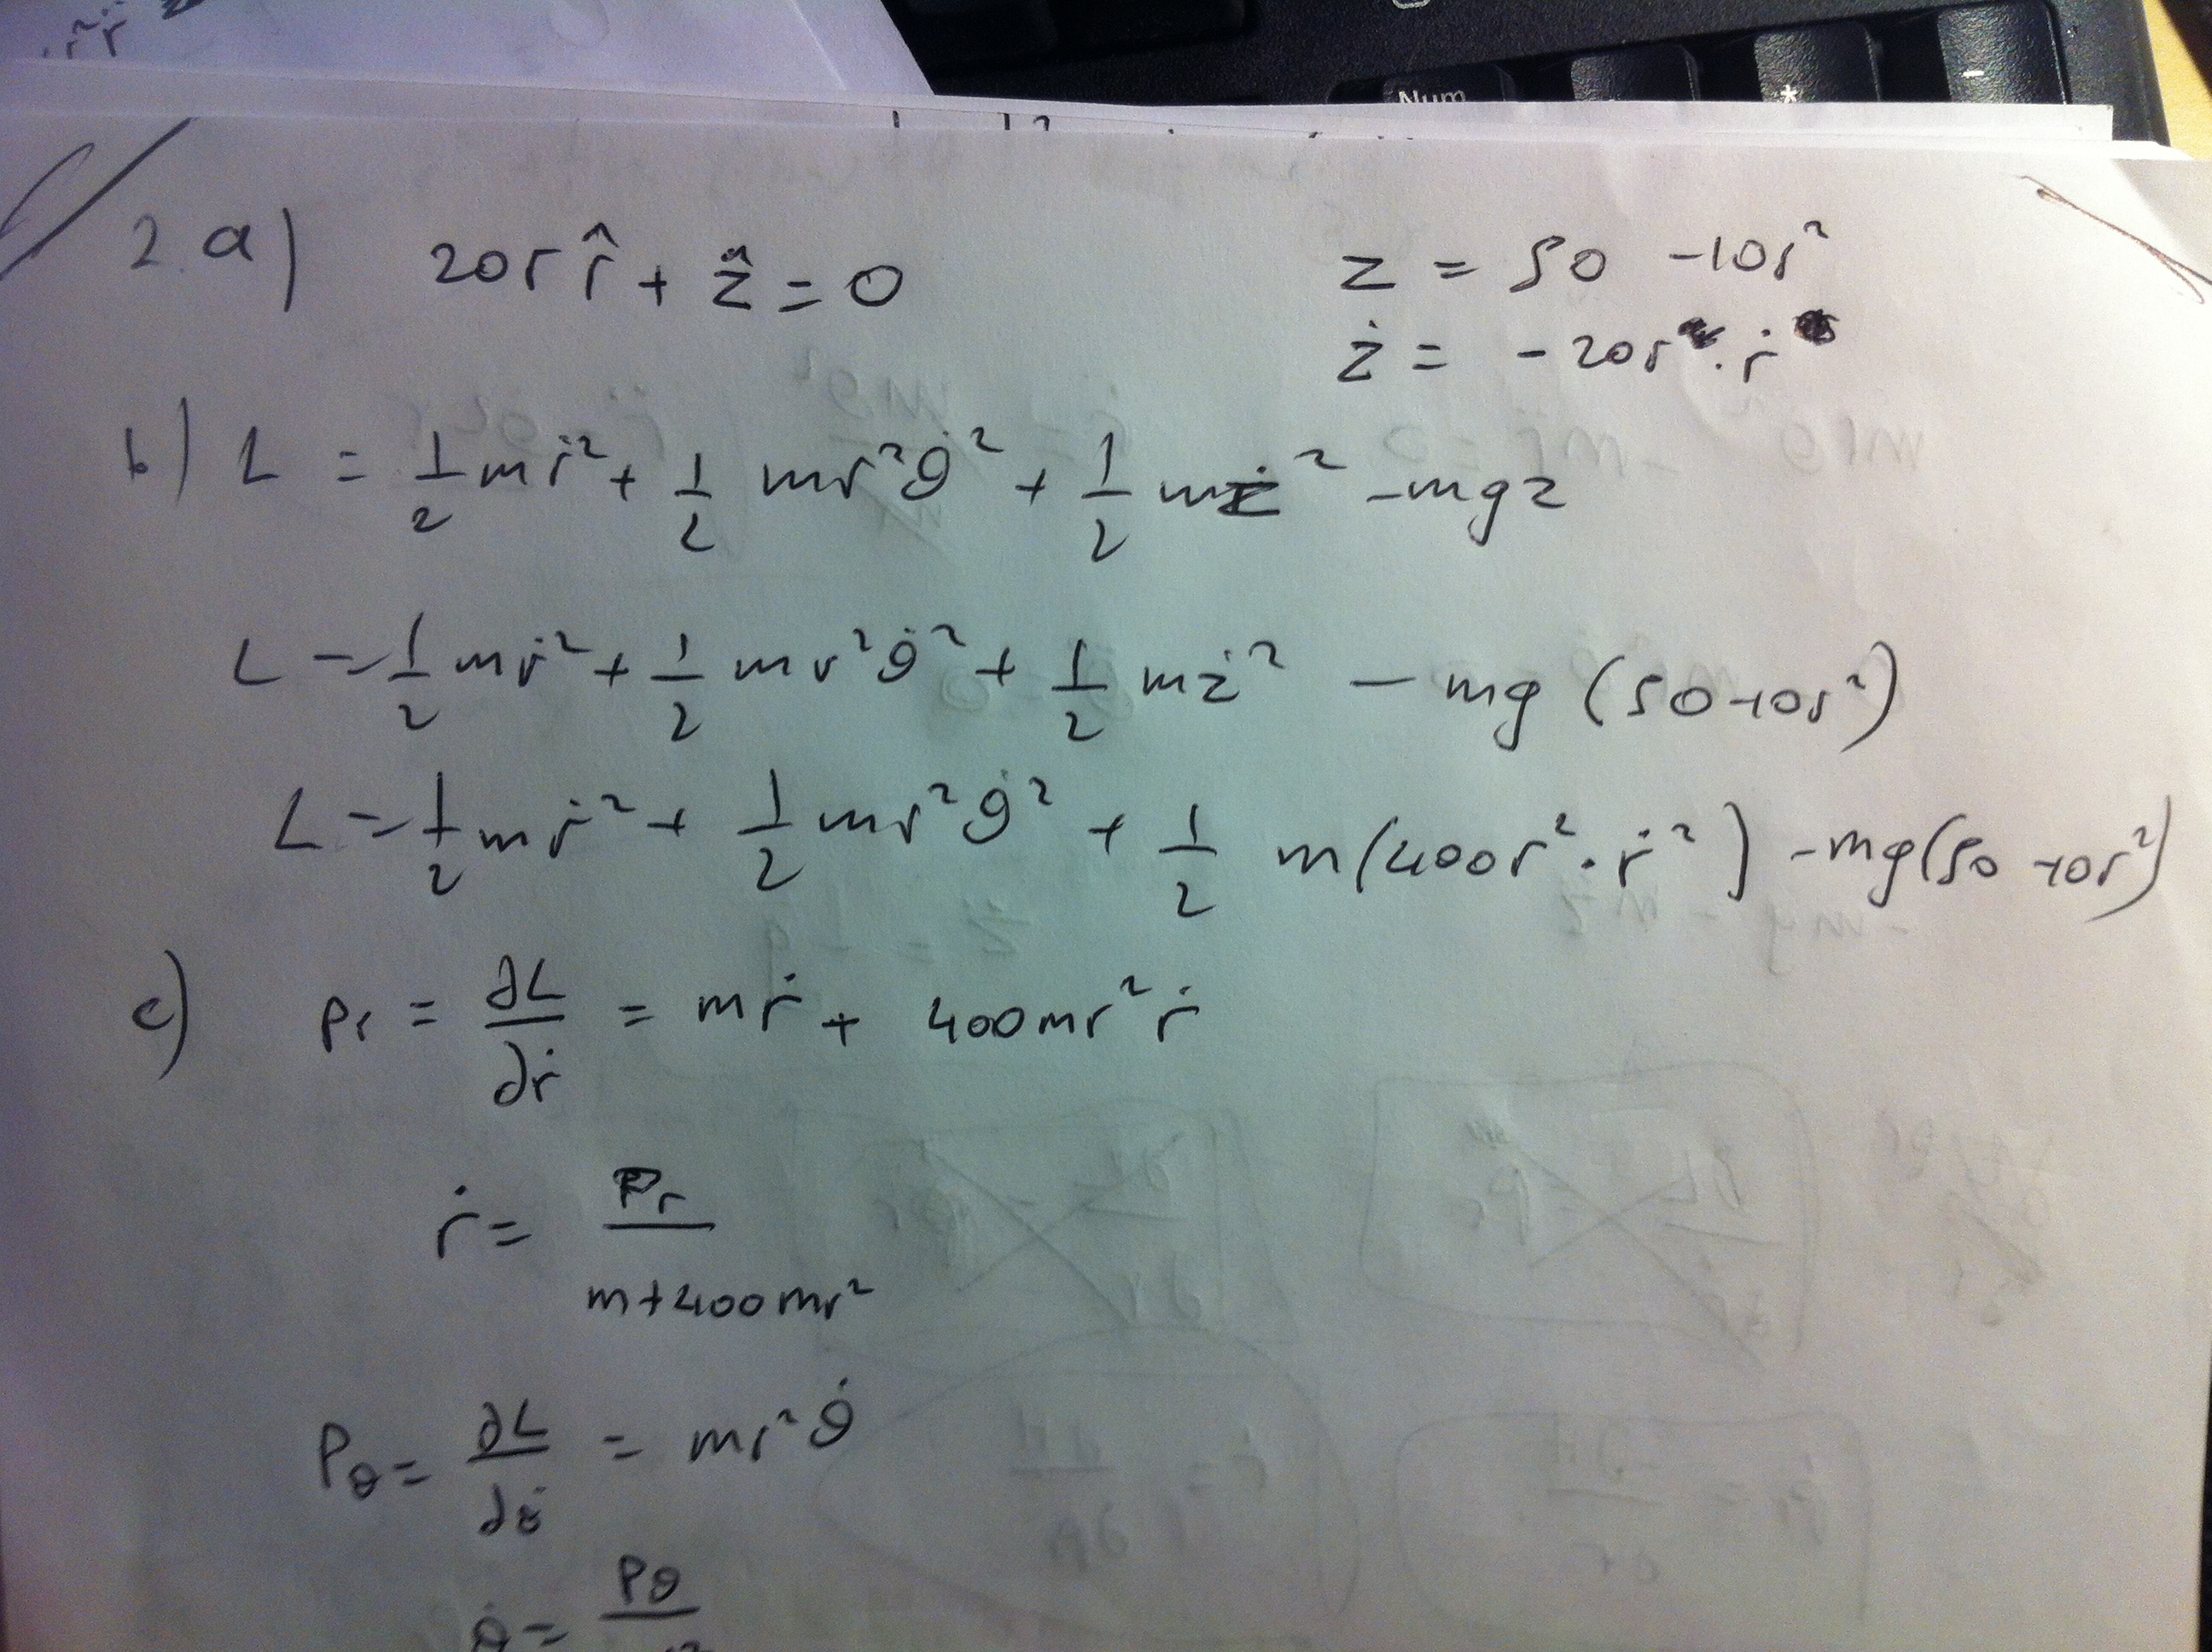 Num
*
-
2. a) 20r r̂ + ẑ = 0
z = 50 - 10r²
ż = - 20r · ṙ
b) L = 1/2 mṙ² + 1/2 mr²θ̇² + 1/2 mż² - mgz
L = 1/2 mṙ² + 1/2 mr²θ̇² + 1/2 mż² - mg (50-10r²)
L = 1/2 mṙ² + 1/2 mr²θ̇² + 1/2 m(400r²·ṙ²) - mg(50-10r²)
c) pr = ∂L/∂ṙ = mṙ + 400mr²ṙ
ṙ = Pr/m+400mr²
Pθ = ∂L/∂θ̇ = mr²θ̇
θ̇ = Pθ